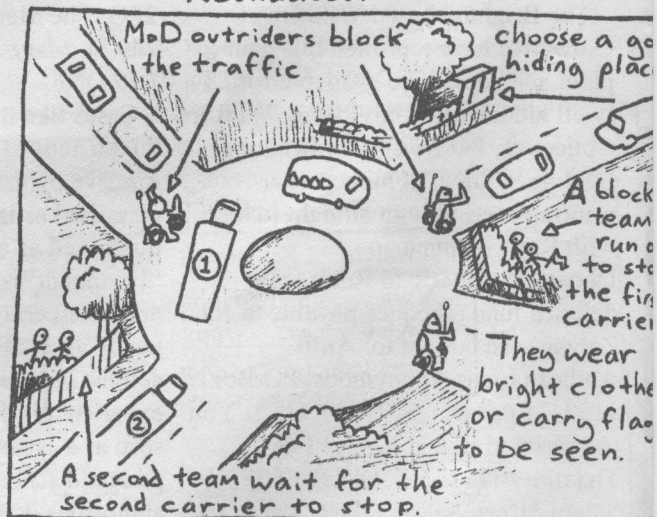 MoD outriders block
the traffic
choose a go
hiding plac
1
A block
team
run o
to sto
the firs
carrier
They wear
bright clothe
or carry flag
to be seen.
2
A second team wait for the
second carrier to stop.